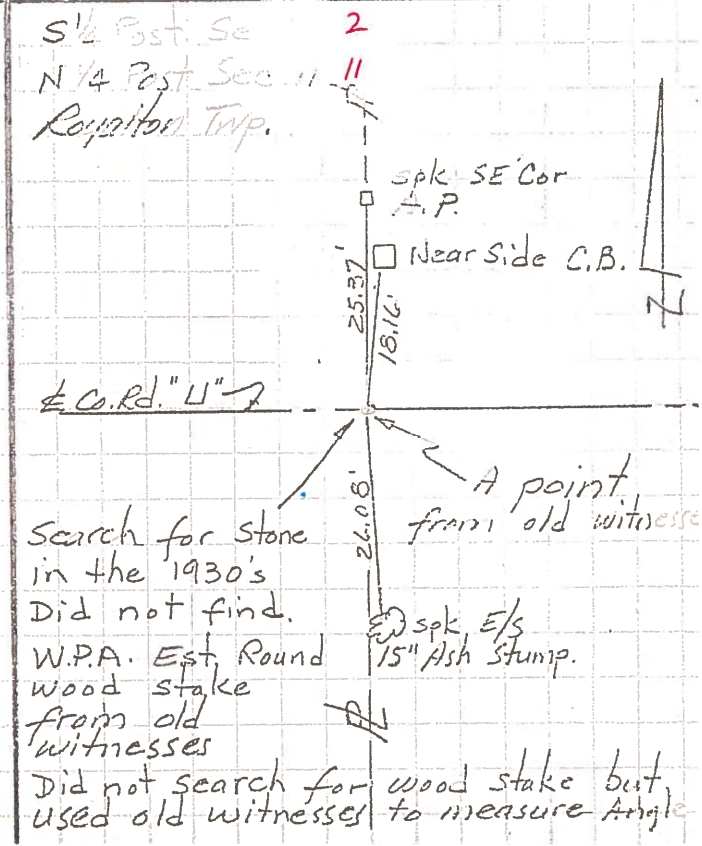 S ¼ Post Se
2
N ¼ Post Sec 11
11
Royalton Twp.
spk SE Cor
A.P.
Near Side C.B.
25.37'
18.16'
N
℄ Co. Rd. "U"
A point
from old witnesse
26.08'
Search for stone
in the 1930's
Did not find.
W.P.A. Est. Round
wood stake
from old
witnesses
spk E/s
15" Ash Stump.
Did not search for wood stake but
used old witnesses to measure Angle